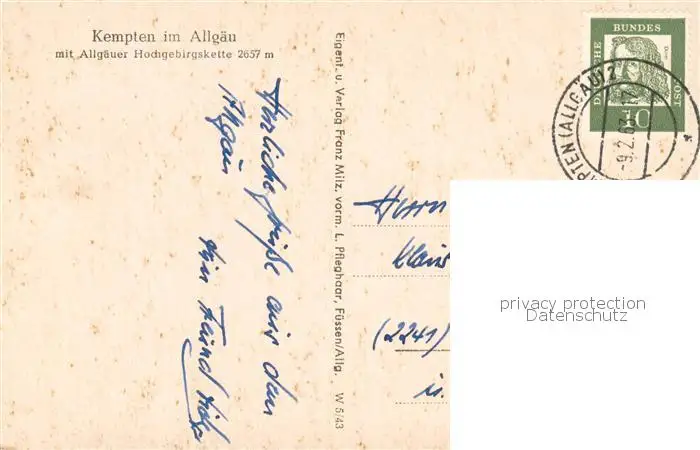 Kempten im Allgäu
mit Allgäuer Hochgebirgskette 2657 m
Herzliche Grüße aus dem
Allgäu
Dein Freund
Eigent. u. Verlag Franz Milz, vorm. L. Pfleghaar, Füssen/Allg. W 5/43
DEUTSCHE BUNDESPOST
10
KEMPTEN (ALLGÄU) 2
-9.2.63-17
Herrn
Klaus
(2241)
in
privacy protection
Datenschutz